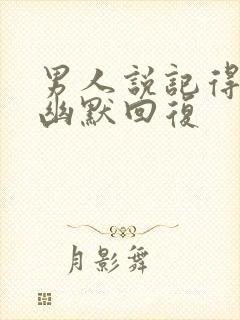 男人說記得
幽默回復
月影舞